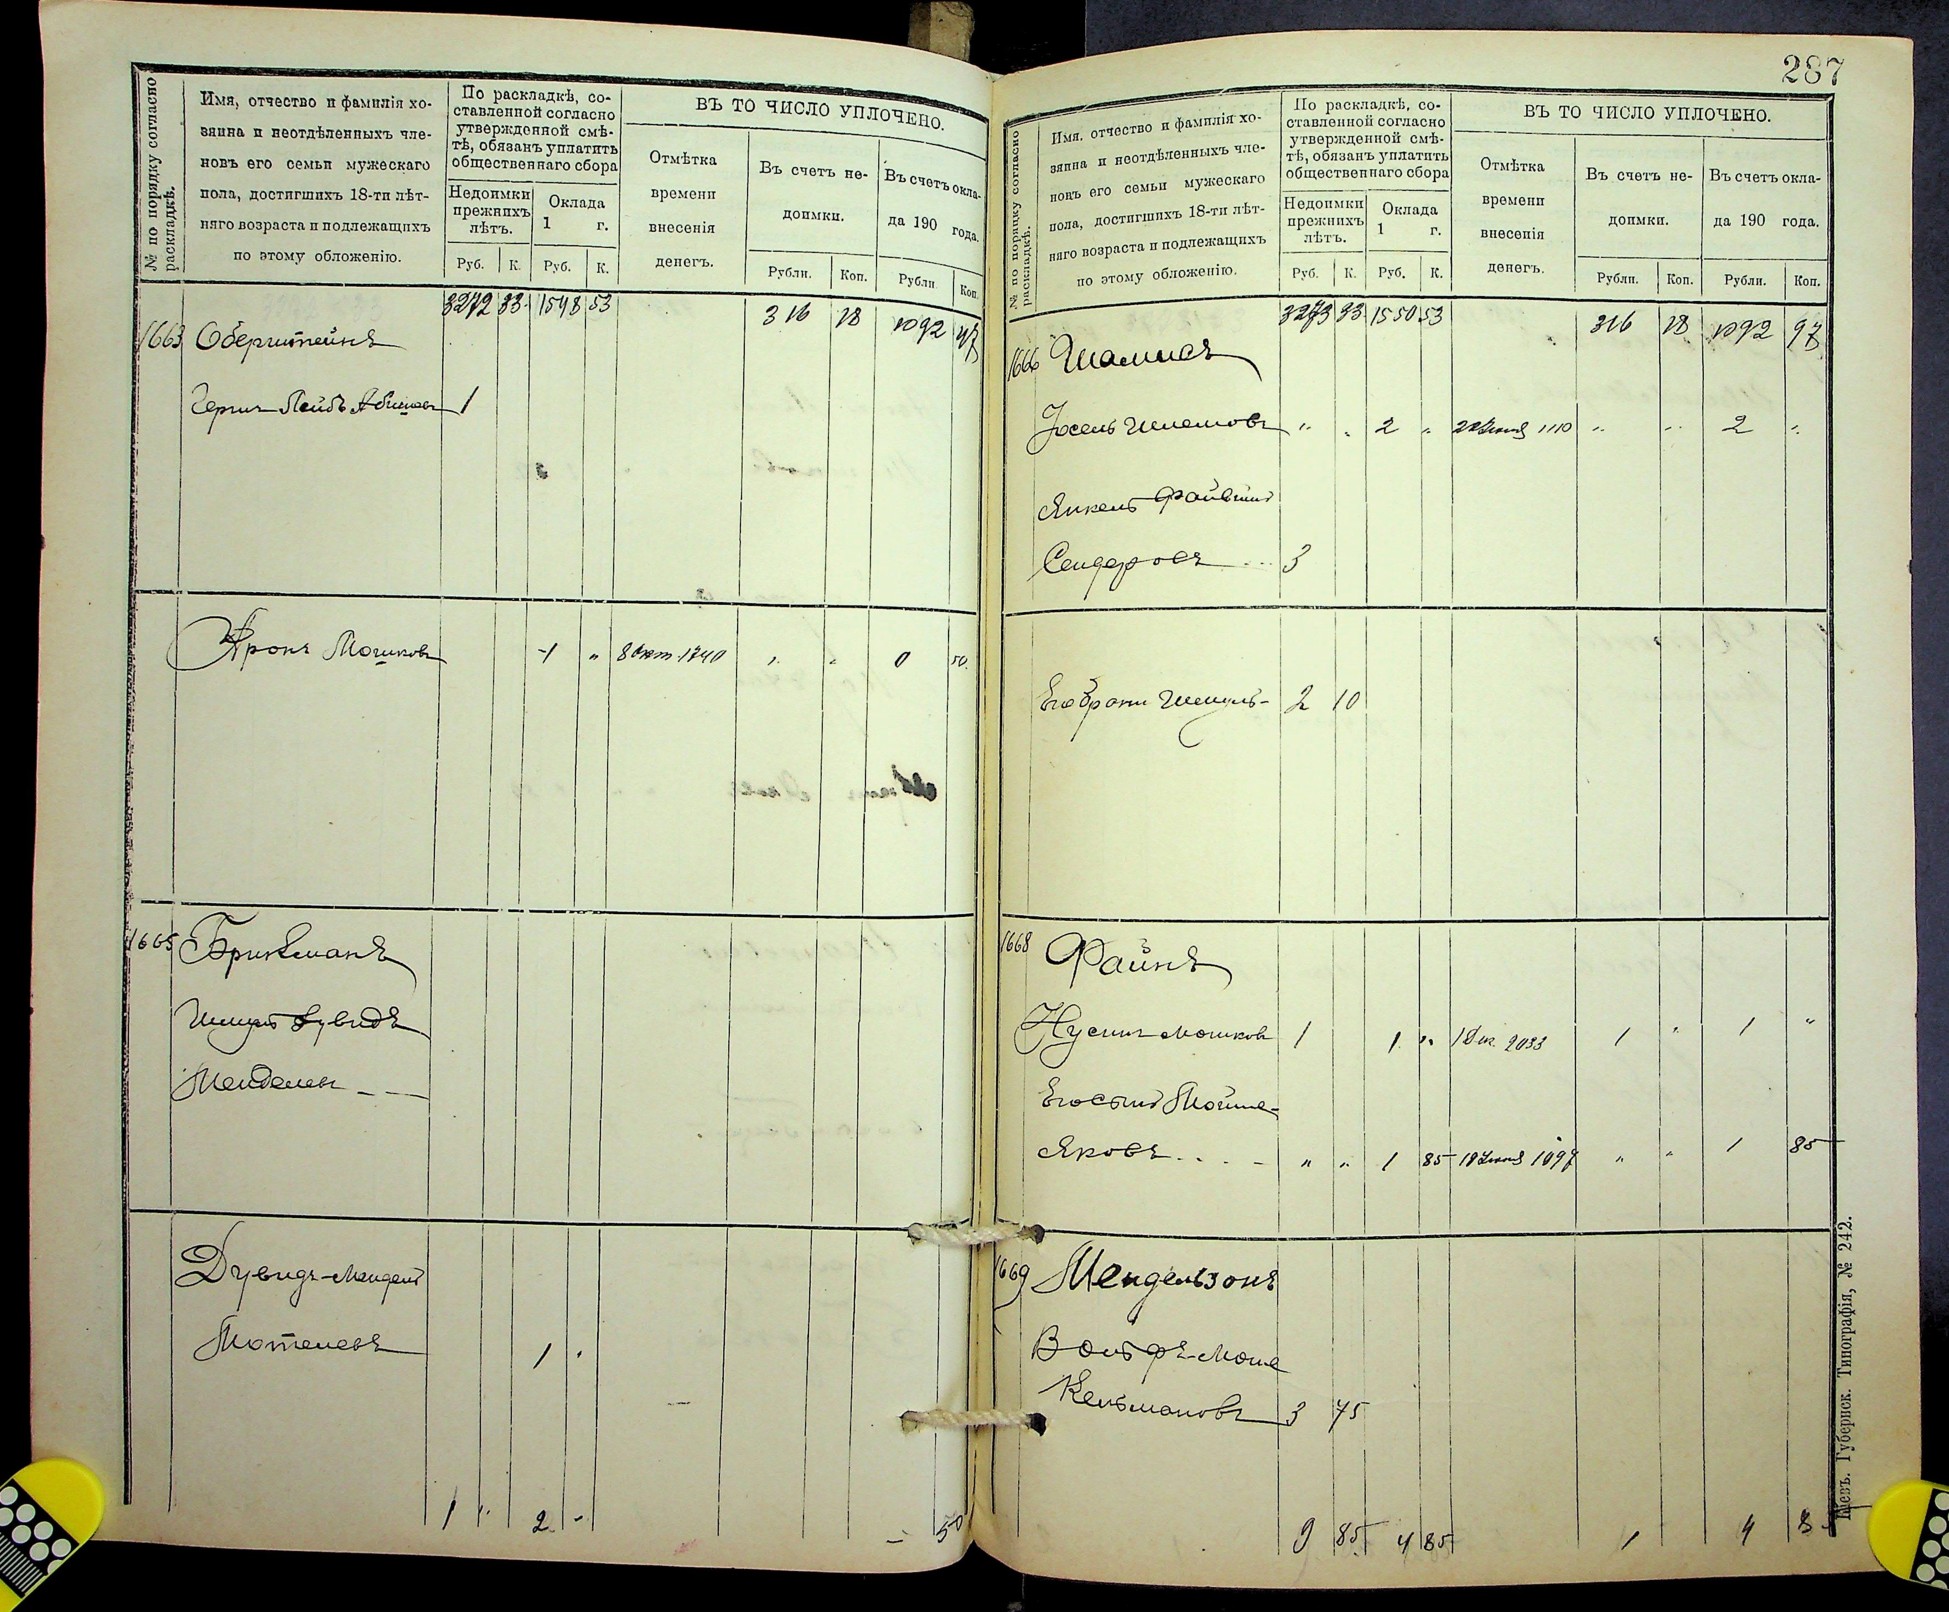 № по порядку согласно раскладкѣ.
Имя, отчество и фамилія хо-
зяина и неотдѣленныхъ чле-
новъ его семьи мужескаго
пола, достигшихъ 18-ти лѣт-
няго возраста и подлежащихъ
по этому обложенію.
По раскладкѣ, со-
ставленной согласно
утвержденной смѣ-
тѣ, обязанъ уплатить
общественнаго сбора
Недоимки прежнихъ лѣтъ.
Оклада 1 г.
Руб. К. Руб. К.
ВЪ ТО ЧИСЛО УПЛОЧЕНО.
Отмѣтка
времени
внесенія
денегъ.
Въ счетъ не-
доимки.
Въ счетъ окла-
да 190 года.
Рубли. Коп. Рубли Коп.
3272 33 1548 53 316 18 1092 47
1663 Оберштейнъ
Герш Лейбъ Абимовъ 1
Аронъ Мошковъ 1 " 8 Окт. 1740 " " 0 50
1665 Брикманъ
Шмуль Дувидъ
Менделевъ
Дувидъ-Мендель
Мотелевъ 1 "
1 " 2 - - 50
287
№ по порядку согласно раскладкѣ.
Имя, отчество и фамилія хо-
зяина и неотдѣленныхъ чле-
новъ его семьи мужескаго
пола, достигшихъ 18-ти лѣт-
няго возраста и подлежащихъ
по этому обложенію.
По раскладкѣ, со-
ставленной согласно
утвержденной смѣ-
тѣ, обязанъ уплатить
общественнаго сбора
Недоимки прежнихъ лѣтъ.
Оклада 1 г.
Руб. К. Руб. К.
ВЪ ТО ЧИСЛО УПЛОЧЕНО.
Отмѣтка
времени
внесенія
денегъ.
Въ счетъ не-
доимки.
Въ счетъ окла-
да 190 года.
Рубли. Коп. Рубли. Коп.
3273 33 1550 53 316 18 1092 97
1666 Шамисъ
Іосель Шлемовъ " " 2 " 1110 " " 2 "
Янкель Файвишъ
Сендеровъ 3
Его братъ Шмуль 2 10
1668 Файнъ
Нусинъ Мошковъ 1 1 " 1 Дек. 2033 1 " 1 "
Его сынъ Мойше-
Яковъ " " 1 85 18 Іюня 1097 " " 1 85
1669 Мендельзонъ
Вольфъ-Моше
Кельмановъ 3 75
9 85 4 85 1 4 8
Губернск. Типографія, № 242.